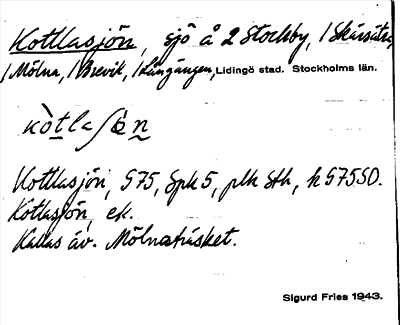 Kottlasjön, sjö å 2 Stockby, 1 Skärsätra,
1 Mölna, 1 Brevik, 1 Långängen, Lidingö stad. Stockholms län.
kòtlaʃö̀n
Kottlasjön, G75, Spk 5, plk Sth, k G75SO.
Kotlasjön, ek.
Kallas äv. Mölnaträsket.
Sigurd Fries 1943.